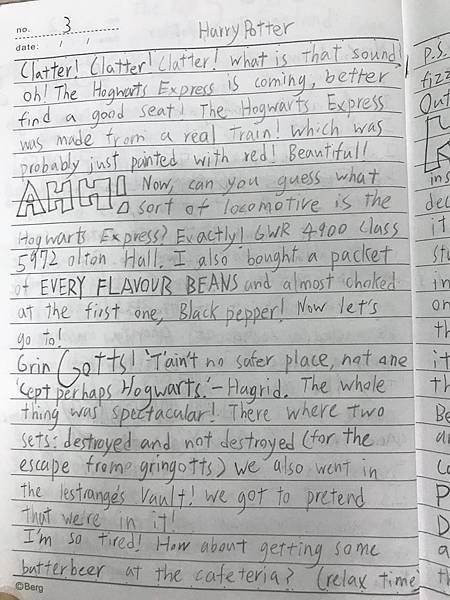 no. 3
date: / /
Harry Potter
Clatter! Clatter! Clatter! What is that sound!
oh! The Hogwarts Express is coming, better
find a good seat! The Hogwarts Express
was made from a real train! Which was
probably just painted with red! Beautiful!
AHH! Now, can you guess what
sort of locomotive is the
Hogwarts Express? Exactly! GWR 4900 Class
5972 olton Hall. I also bought a packet
of EVERY FLAVOUR BEANS and almost choked
at the first one, Black pepper! Now let's
go to!
Grin Gotts! 'T'ain't no safer place, not one
'cept perhaps Hogwarts.'-Hagrid. The whole
thing was spectacular! There where two
sets: destroyed and not destroyed (for the
escape from gringotts) we also went in
the lestrange's Vault! we got to pretend
that we're in it!
I'm so tired! How about getting some
butterbeer at the cafeteria? (relax time)
©Berg
P.S.
fizz
Out
ins
dec
it
stu
in
on
th
it
th
Be
a
P
D
a
th